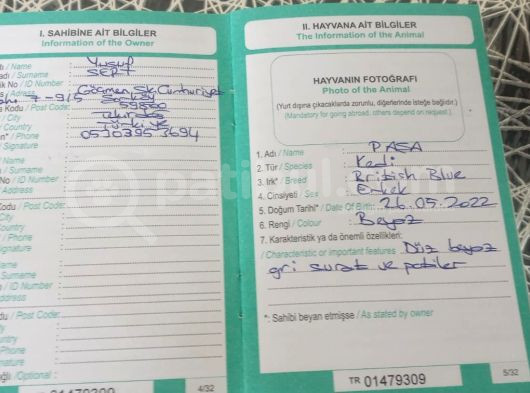 I. SAHİBİNE AİT BİLGİLER
Information of the Owner
/ Name Yusuf
/ Surname SERT
No / ID Number
Address Göçmen Sk. Cumhuriyet
7-9/5 59850
Kodu / Post Code
/ City
/ Country Türkiye
/ Phone 05303953694
/ Signature
Name
/ Surname
No / ID Number
Address
Kodu / Post Code:
City
Country
/ Phone
Signature
Surname
/ ID Number
Address
du / Post Code:
Phone
/Optional :
01479309
4/32
II. HAYVANA AİT BİLGİLER
The Information of the Animal
HAYVANIN FOTOĞRAFI
Photo of the Animal
(Yurt dışına çıkacaklarda zorunlu, diğerlerinde isteğe bağlıdır.)
(Mandatory for going abroad, others depend on request.)
1. Adı / Name : PAŞA
2. Tür / Species : Kedi
3. Irk* / Breed : British Blue
4. Cinsiyeti / Sex : Erkek
5. Doğum Tarihi* / Date Of Birth : 26.05.2022
6. Rengi / Colour : Beyaz
7. Karakteristik ya da önemli özellikleri:
/ Characteristic or important features Düz beyaz
gri surat ve patiler
*: Sahibi beyan etmişse / As stated by owner
TR 01479309
5/32